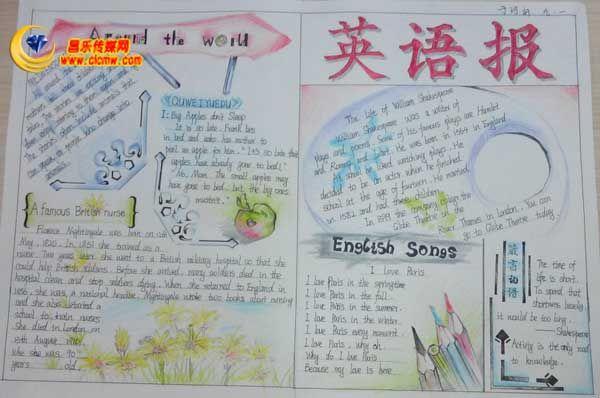 昌乐传媒网
www.clcmw.com
Around the world
英语报
QUWEIYUEDU
I: Big Apples don't Sleep
It is so late. Frank lies
in bed and asks his mother to
pass an apple for him. "It's so late that
apples have already gone to bed!"
"No, Mom. The small apples may
have gone to bed. but the big ones
mustn't."
A Famous British nurse
Florence Nightingale was born on 12th
May, 1820. In 1851 she trained as a
nurse. Two years later she went to a British military hospital so that she
could help British soldiers. Before she arrived, many soldiers died in the
hospital clean and stop soldiers dying. When she returned to England in
1856, she was a national heroine. Nightingale wrote two books about nursing
and she also started a
school to train nurses
She died in London on
13th August 1910,
when she was 90
years old.
The Life of William Shakespeare
William Shakespeare was a writer of
plays and poems. Some of his famous plays are Hamlet
and Romeo and Juliet. He was born in 1564 in England
At school he liked watching plays. He
decided to be an actor when he finished
school at the age of fourteen. He married
in 1582 and had three children.
In 1599 the company built the
Globe Theatre in the
River Thames in London. You can
go to Globe Theatre today
English Songs
I Love Paris
I love Paris in the springtime
I love Paris in the fall
I love Paris in the summer
I love Paris in the winter
I love Paris every moment
I love Paris, why oh
Why do I love Paris
Because my love is here
The time of
life is short.
To spend that
shortness basely
it would be too long.
—Shakespeare
Activity is the only road
to knowledge.